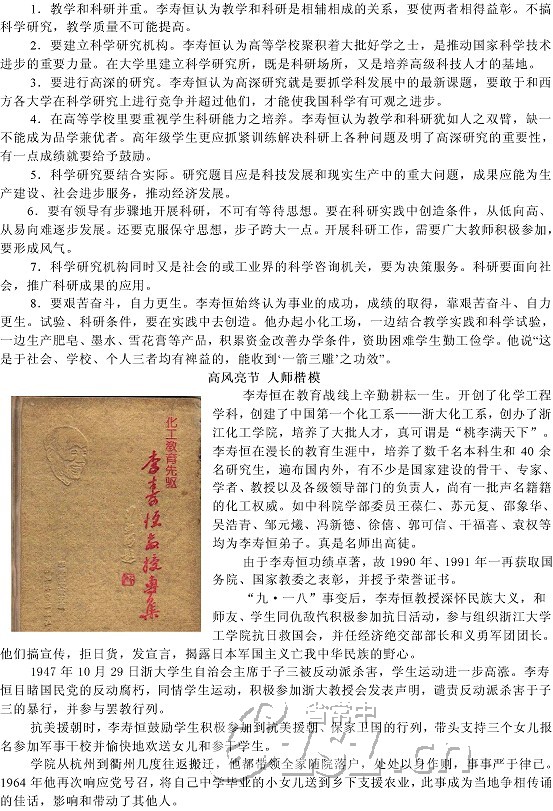 1．教学和科研并重。李寿恒认为教学和科研是相辅相成的关系，要使两者相得益彰。不搞
科学研究，教学质量不可能提高。
2．要建立科学研究机构。李寿恒认为高等学校聚积着大批好学之士，是推动国家科学技术
进步的重要力量。在大学里建立科学研究所，既是科研场所，又是培养高级科技人才的基地。
3．要进行高深的研究。李寿恒认为高深研究就是要抓学科发展中的最新课题，要敢于和西
方各大学在科学研究上进行竞争并超过他们，才能使我国科学有可观之进步。
4．在高等学校里要重视学生科研能力之培养。李寿恒认为教学和科研犹如人之双臂，缺一
不能成为品学兼优者。高年级学生更应抓紧训练解决科研上各种问题及明了高深研究的重要性，
有一点成绩就要给予鼓励。
5．科学研究要结合实际。研究题目应是科技发展和现实生产中的重大问题，成果应能为生
产建设、社会进步服务，推动经济发展。
6．要有领导有步骤地开展科研，不可有等待思想。要在科研实践中创造条件，从低向高、
从易向难逐步发展。还要克服保守思想，步子跨大一点。开展科研工作，需要广大教师积极参加，
要形成风气。
7．科学研究机构同时又是社会的或工业界的科学咨询机关，要为决策服务。科研要面向社
会，推广科研成果的应用。
8．要艰苦奋斗，自力更生。李寿恒始终认为事业的成功，成绩的取得，靠艰苦奋斗、自力
更生。试验、科研条件，要在实践中去创造。他办起小化工场，一边结合教学实践和科学试验，
一边生产肥皂、墨水、雪花膏等产品，积累资金改善办学条件，资助困难学生勤工俭学。他说“这
是于社会、学校、个人三者均有裨益的，能收到‘一箭三雕’之功效”。
高风亮节 人师楷模
化工教育先驱
李寿恒教授专集
李寿恒在教育战线上辛勤耕耘一生。开创了化学工程
学科，创建了中国第一个化工系——浙大化工系，创办了浙
江化工学院，培养了大批人才，真可谓是“桃李满天下”。
李寿恒在漫长的教育生涯中，培养了数千名本科生和 40 余
名研究生，遍布国内外，有不少是国家建设的骨干、专家、
学者、教授以及各级领导部门的负责人，尚有一批声名籍籍
的化工权威。如中科院学部委员王葆仁、苏元复、邵象华、
吴浩青、邹元爔、冯新德、徐僖、郭可信、干福熹、袁权等
均为李寿恒弟子。真是名师出高徒。
由于李寿恒功绩卓著，故 1990 年、1991 年一再获取国
务院、国家教委之表彰，并授予荣誉证书。
“九·一八”事变后，李寿恒教授深怀民族大义，和
师友、学生同仇敌忾积极参加抗日活动，参与组织浙江大学
工学院抗日救国会，并任经济绝交部部长和义勇军团团长。
他们搞宣传，拒日货，发宣言，揭露日本军国主义亡我中华民族的野心。
1947 年 10 月 29 日浙大学生自治会主席于子三被反动派杀害，学生运动进一步高涨。李寿
恒目睹国民党的反动腐朽，同情学生运动，积极参加浙大教授会发表声明，谴责反动派杀害于子
三的暴行，并参与罢教行列。
抗美援朝时，李寿恒鼓励学生积极参加到抗美援朝、保家卫国的行列，带头支持三个女儿报
名参加军事干校并愉快地欢送女儿和参干学生。
学院从杭州到衢州几度往返搬迁，他都带领全家随院落户，处处以身作则，事事严于律己。
1964 年他再次响应党号召，将自己中学毕业的小女儿送到乡下支援农业，此事成为当地争相传诵
的佳话，影响和带动了其他人。